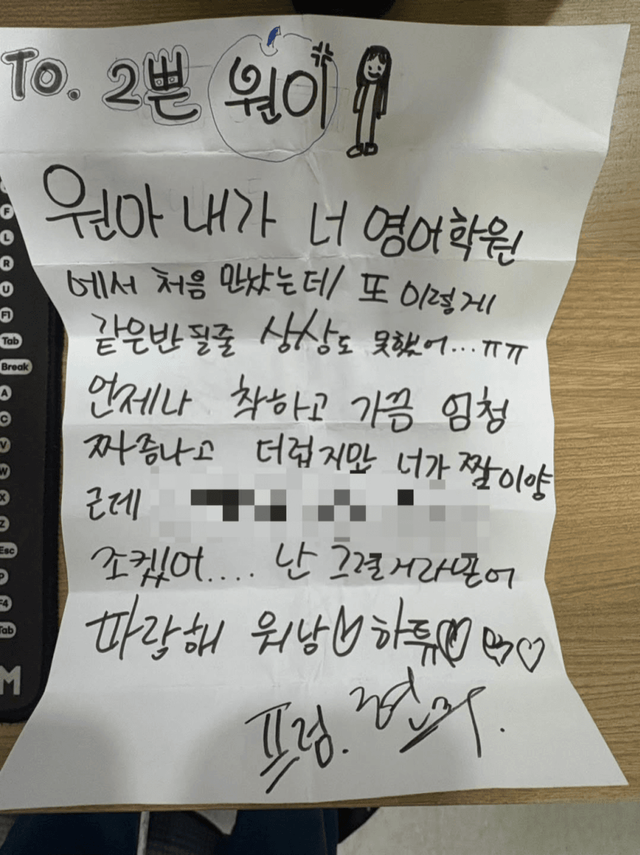 To. 2쁜 원이
원아 내가 너 영어학원
에서 처음 만났는데/ 또 이렇게
같은반 될줄 상상도 못했어...ㅠㅠ
언제나 착하고 가끔 엄청
짜증나고 더럽지만 너가 짱이양
근데
조켔어.... 난 그럴거라믿어
따랑해 워남♡하튜♡ ♡
프럼.
F
L
R
U
F1
Tab
Break
A
C
V
W
X
Z
Esc
P
F4
Tab
M